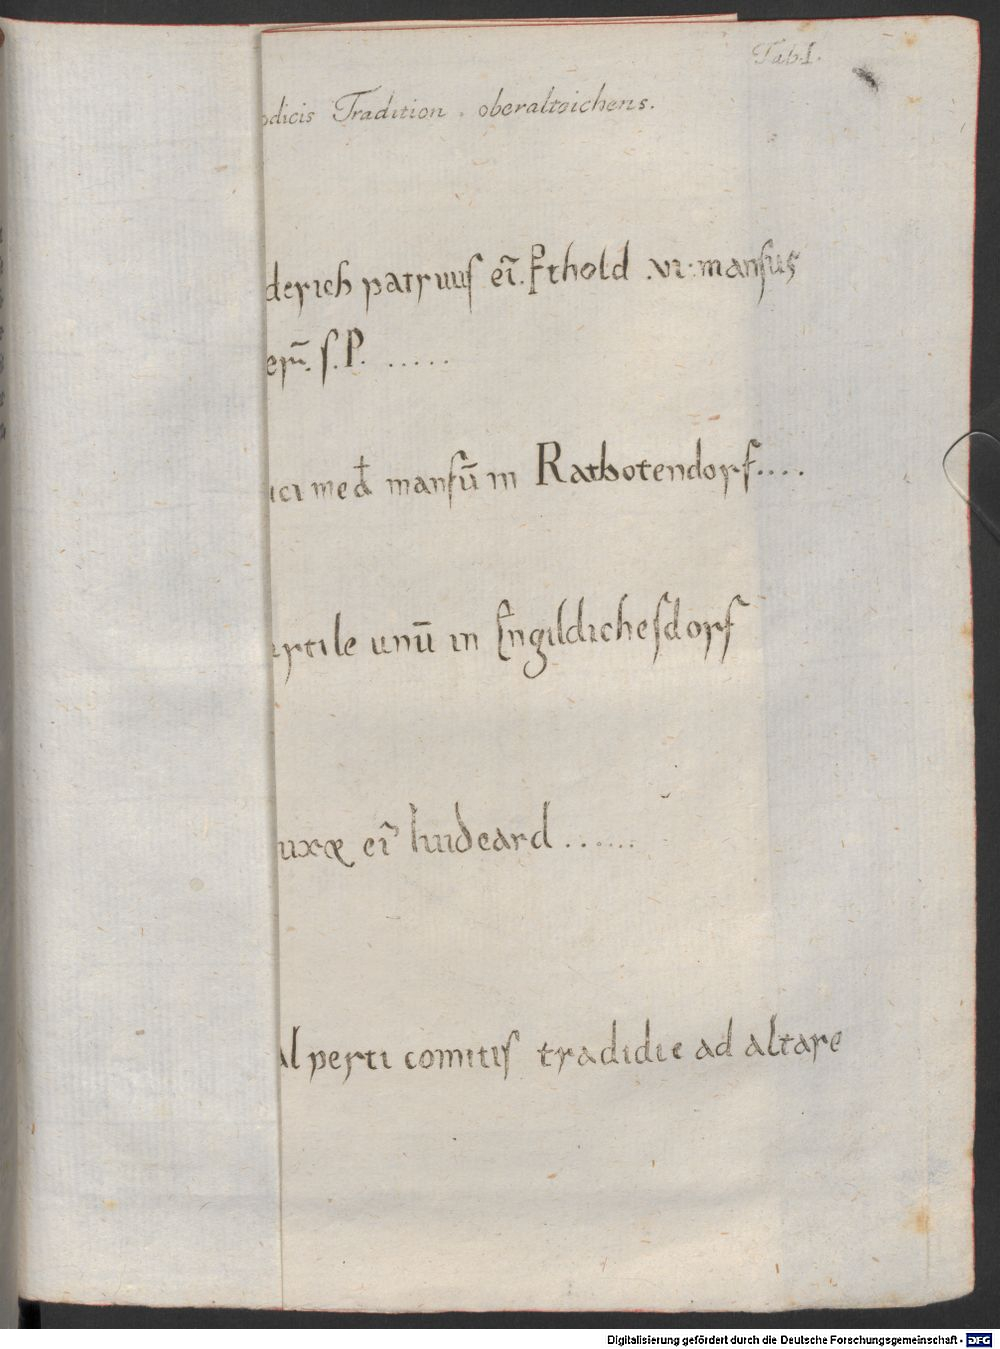 Tab. I.
odicis Tradition. oberalteichens.
derich patruus ei᷎. Ethold .VI. mansus
erū. s. P. .....
ici med̵ mansū in Ratbotendorf....
rtile unū in Engildichesdorf
uxore ei᷎ luideard ......
alperti comitis tradidit ad altare
Digitalisierung gefördert durch die Deutsche Forschungsgemeinschaft - DFG